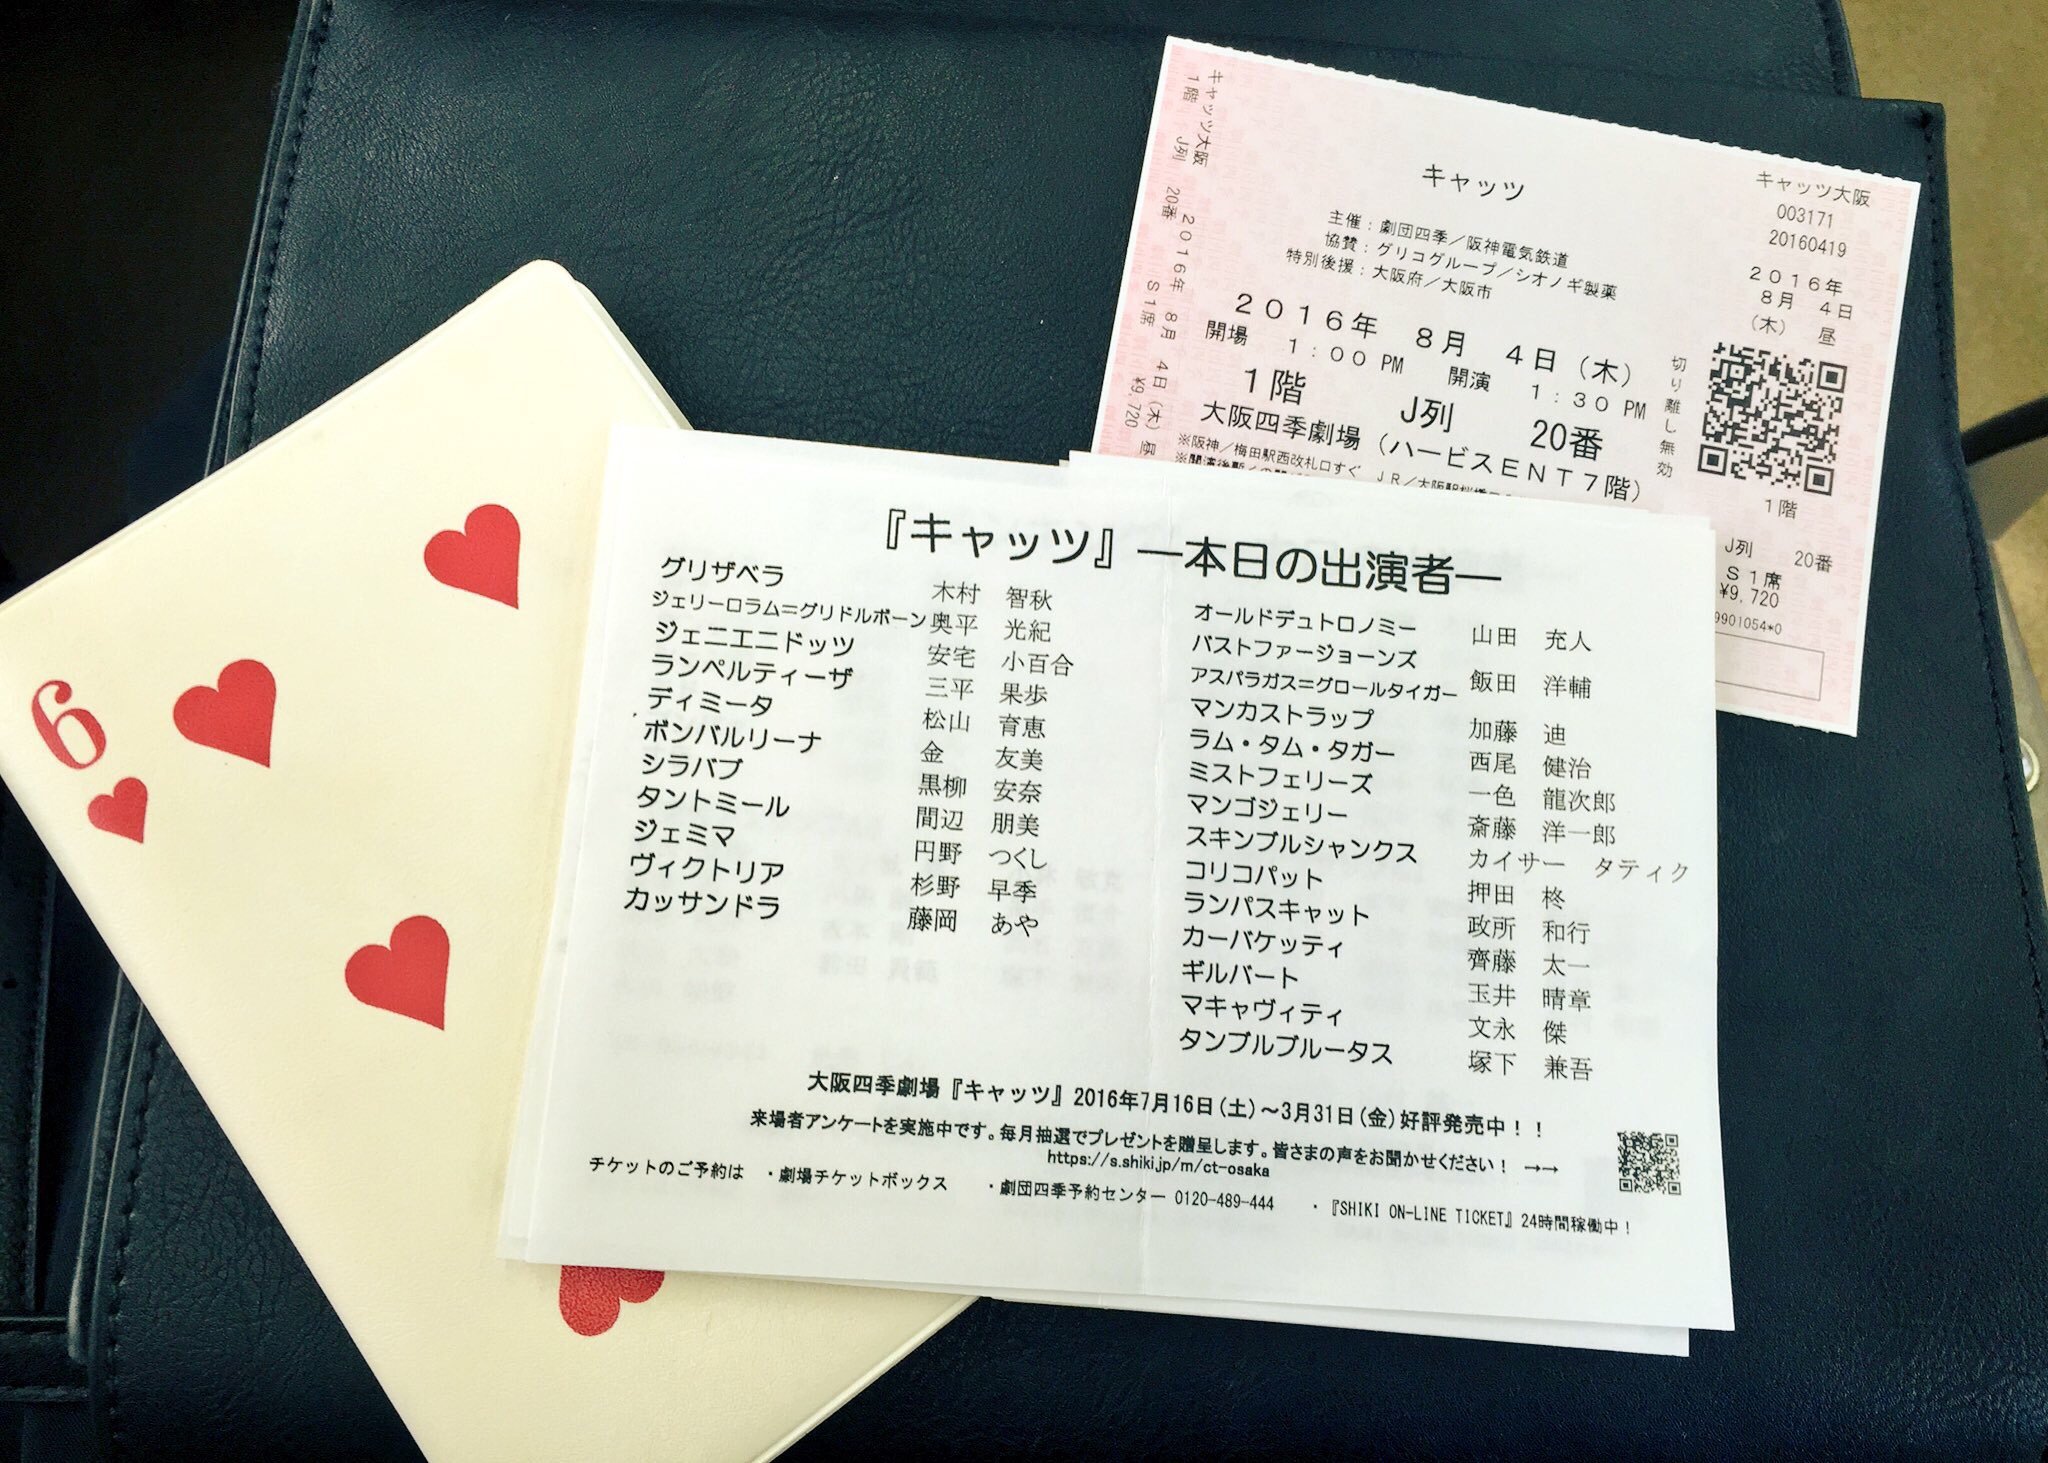 キャッツ大阪 2016年 8月 4日(木)昼
1階 J列 20番 S1席 ¥9,720
キャッツ
主催：劇団四季／阪神電気鉄道
協賛：グリコグループ／シオノギ製薬
特別後援：大阪府／大阪市
2016年 8月 4日（木）
開場 1：00 PM 開演 1：30 PM
1階 J列 20番
大阪四季劇場（ハービスENT7階）
※阪神／梅田駅西改札口すぐ JR／大阪駅桜橋
切り離し無効
キャッツ大阪
003171
20160419
2016年
8月 4日
（木） 昼
1階
J列 20番
S1席
¥9,720
9901054*0
6
『キャッツ』―本日の出演者―
グリザベラ 木村 智秋
ジェリーロラム＝グリドルボーン 奥平 光紀
ジェニエニドッツ 安宅 小百合
ランペルティーザ 三平 果歩
ディミータ 松山 育恵
ボンバルリーナ 金 友美
シラバブ 黒柳 安奈
タントミール 間辺 朋美
ジェミマ 円野 つくし
ヴィクトリア 杉野 早季
カッサンドラ 藤岡 あや
オールドデュトロノミー 山田 充人
バストファージョーンズ
アスパラガス＝グロールタイガー 飯田 洋輔
マンカストラップ 加藤 迪
ラム・タム・タガー 西尾 健治
ミストフェリーズ 一色 龍次郎
マンゴジェリー 斎藤 洋一郎
スキンブルシャンクス カイサー タティク
コリコパット 押田 柊
ランパスキャット 政所 和行
カーバケッティ 齊藤 太一
ギルバート 玉井 晴章
マキャヴィティ 文永 傑
タンブルブルータス 塚下 兼吾
大阪四季劇場『キャッツ』2016年7月16日(土)～3月31日(金)好評発売中！！
来場者アンケートを実施中です。毎月抽選でプレゼントを贈呈します。皆さまの声をお聞かせください！ →→
https://s.shiki.jp/m/ct-osaka
チケットのご予約は ・劇場チケットボックス ・劇団四季予約センター 0120-489-444 ・『SHIKI ON-LINE TICKET』24時間稼働中！